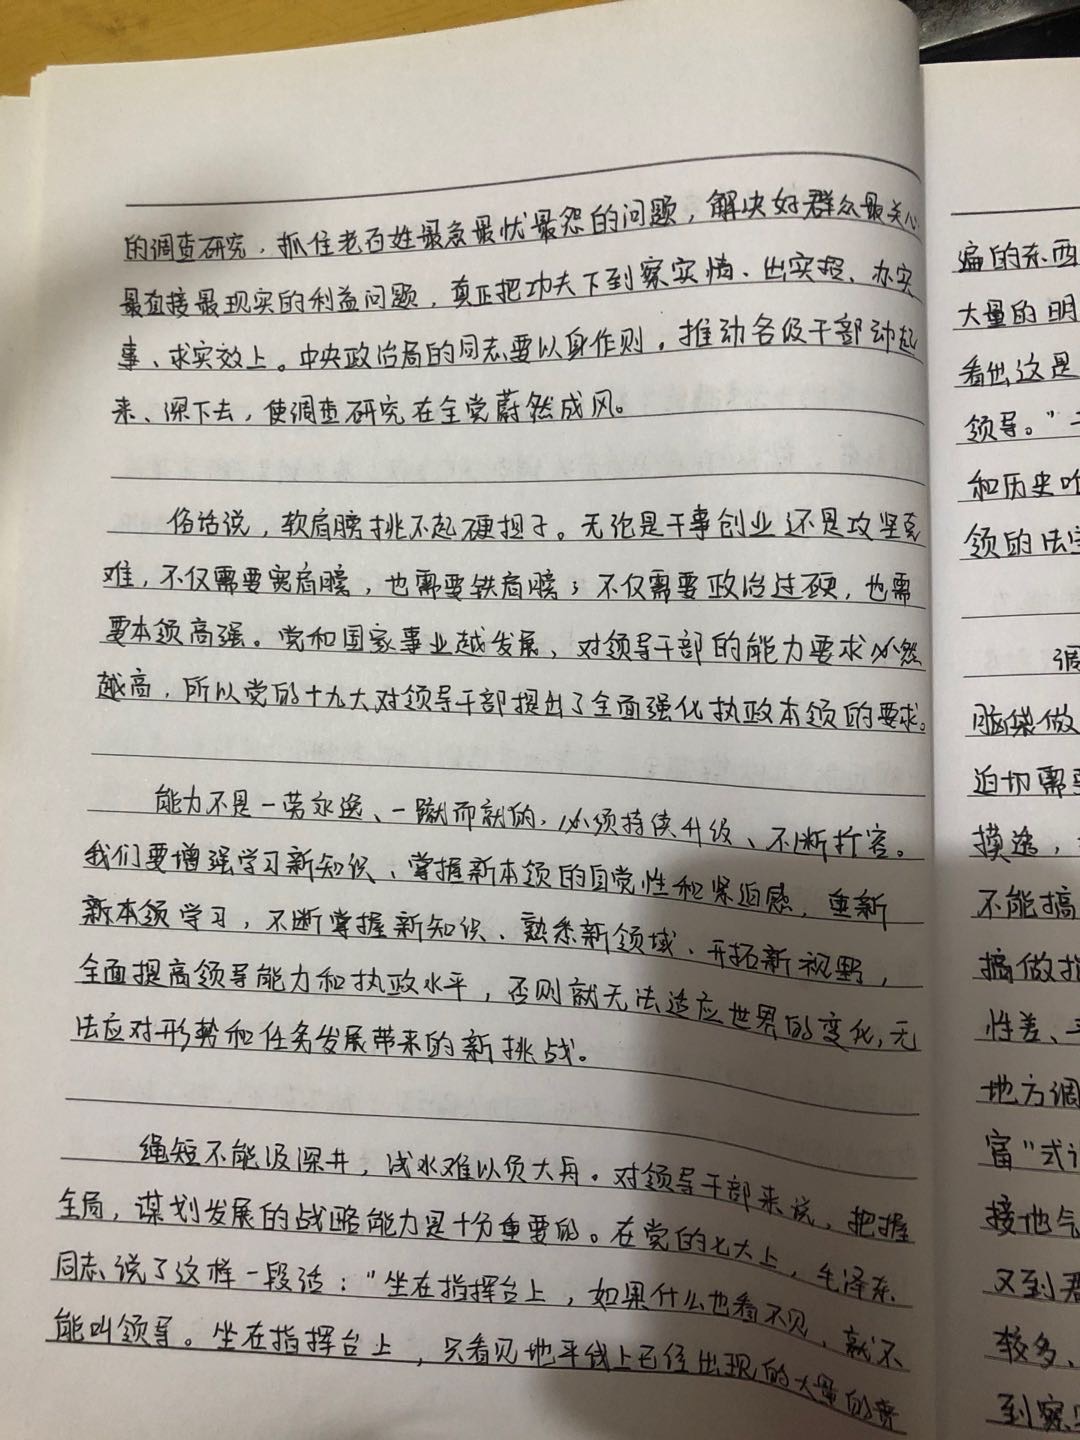 的调查研究，抓住老百姓最急最忧最怨的问题，解决好群众最关心
最直接最现实的利益问题，真正把功夫下到察实情、出实招、办实
事、求实效上。中央政治局的同志要以身作则，推动各级干部动起
来、深下去，使调查研究在全党蔚然成风。
俗话说，软肩膀挑不起硬担子。无论是干事创业还是攻坚克
难，不仅需要宽肩膀，也需要铁肩膀；不仅需要政治过硬，也需
要本领高强。党和国家事业越发展，对领导干部的能力要求必然
越高，所以党的十九大对领导干部提出了全面强化执政本领的要求。
能力不是一劳永逸、一蹴而就的，必须持续升级、不断扩容。
我们要增强学习新知识、掌握新本领的自觉性和紧迫感，重新
新本领学习，不断掌握新知识、熟悉新领域、开拓新视野，
全面提高领导能力和执政水平，否则就无法适应世界的变化，无
法应对形势和任务发展带来的新挑战。
绳短不能汲深井，浅水难以负大舟。对领导干部来说，把握
全局，谋划发展的战略能力是十分重要的。在党的七大上，毛泽东
同志说了这样一段话："坐在指挥台上，如果什么也看不见，就不
能叫领导。坐在指挥台上，只看见地平线上已经出现的大量的普
遍的东西
大量的明
看出这是
领导。"
和历史唯
领的法宝
调
脑袋做
迫切需要
摸透，
不能搞
搞做指
性差、
地方调
富"式
接地气
又到君
较多、
到察